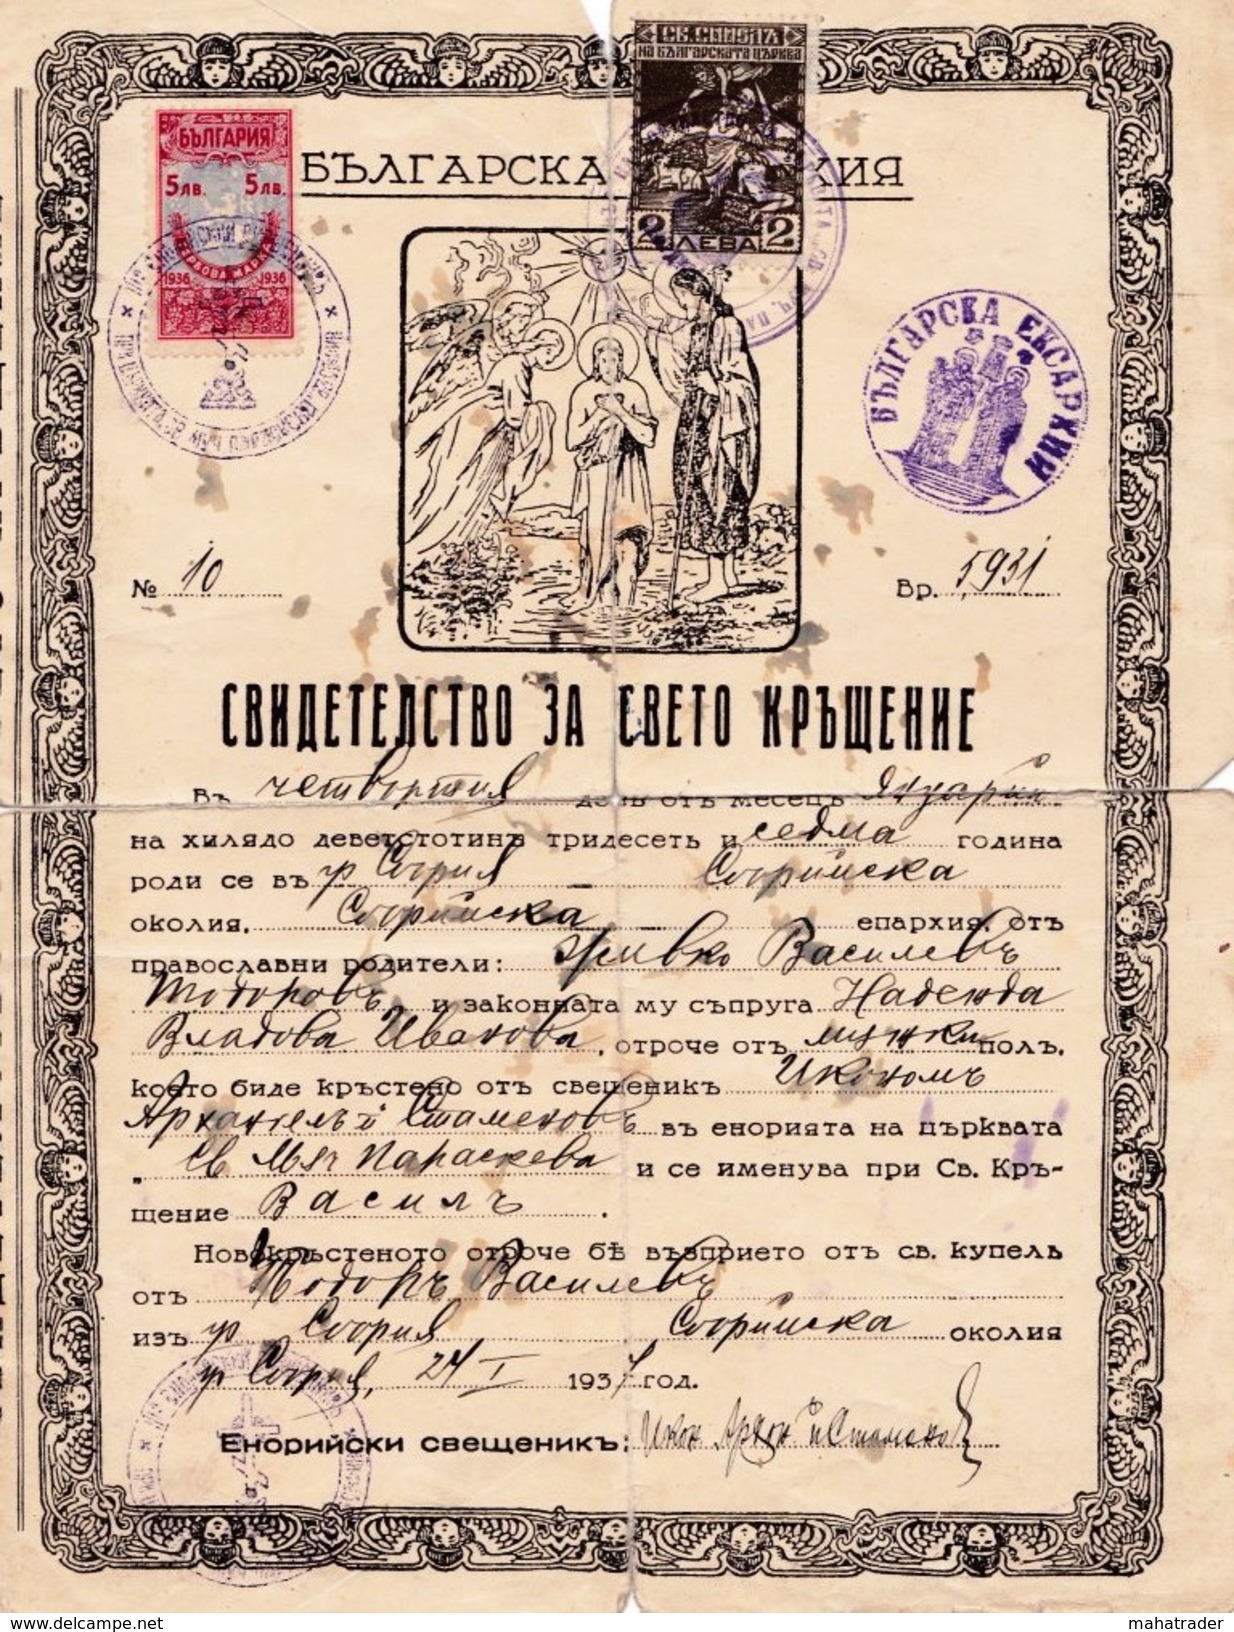 СВ. СИНОДЪ
НА БЪЛГАРСКАТА ЦЪРКВА
2 ЛЕВА 2
БЪЛГАРИЯ
5 ЛВ. 5 ЛВ.
ГЕРБОВА МАРКА
1936 1936
БЪЛГАРСКА
БЪЛГАРСКА ЕКСАРХИЯ
№ 10
Вр. 5931
СВИДЕТЕЛСТВО ЗА СВЕТО КРЪЩЕНИЕ
Въ четвъртия день отъ месецъ Януарий
на хилядо деветстотинъ тридесетъ и седма година
роди се въ гр София – Софийска
околия, Софийска епархия, отъ
православни родители: Живко Василевъ
Тодоровъ и законната му съпруга Надежда
Владова Иванова, отроче отъ мужки полъ,
което биде кръстено отъ свещеникъ Икономъ
Архангелъ Стаменовъ въ енорията на църквата
„Св М-ца Параскева и се именува при Св. Кръ-
щение Василъ.
Новокръстеното отроче бѣ възприето отъ св. купель
отъ Тодоръ Василевъ
изъ гр София Софийска околия
гр София, 24 I 1937 год.
Енорийски свещеникъ: Икон Арх Стаменов
www.delcampe.net
mahatrader